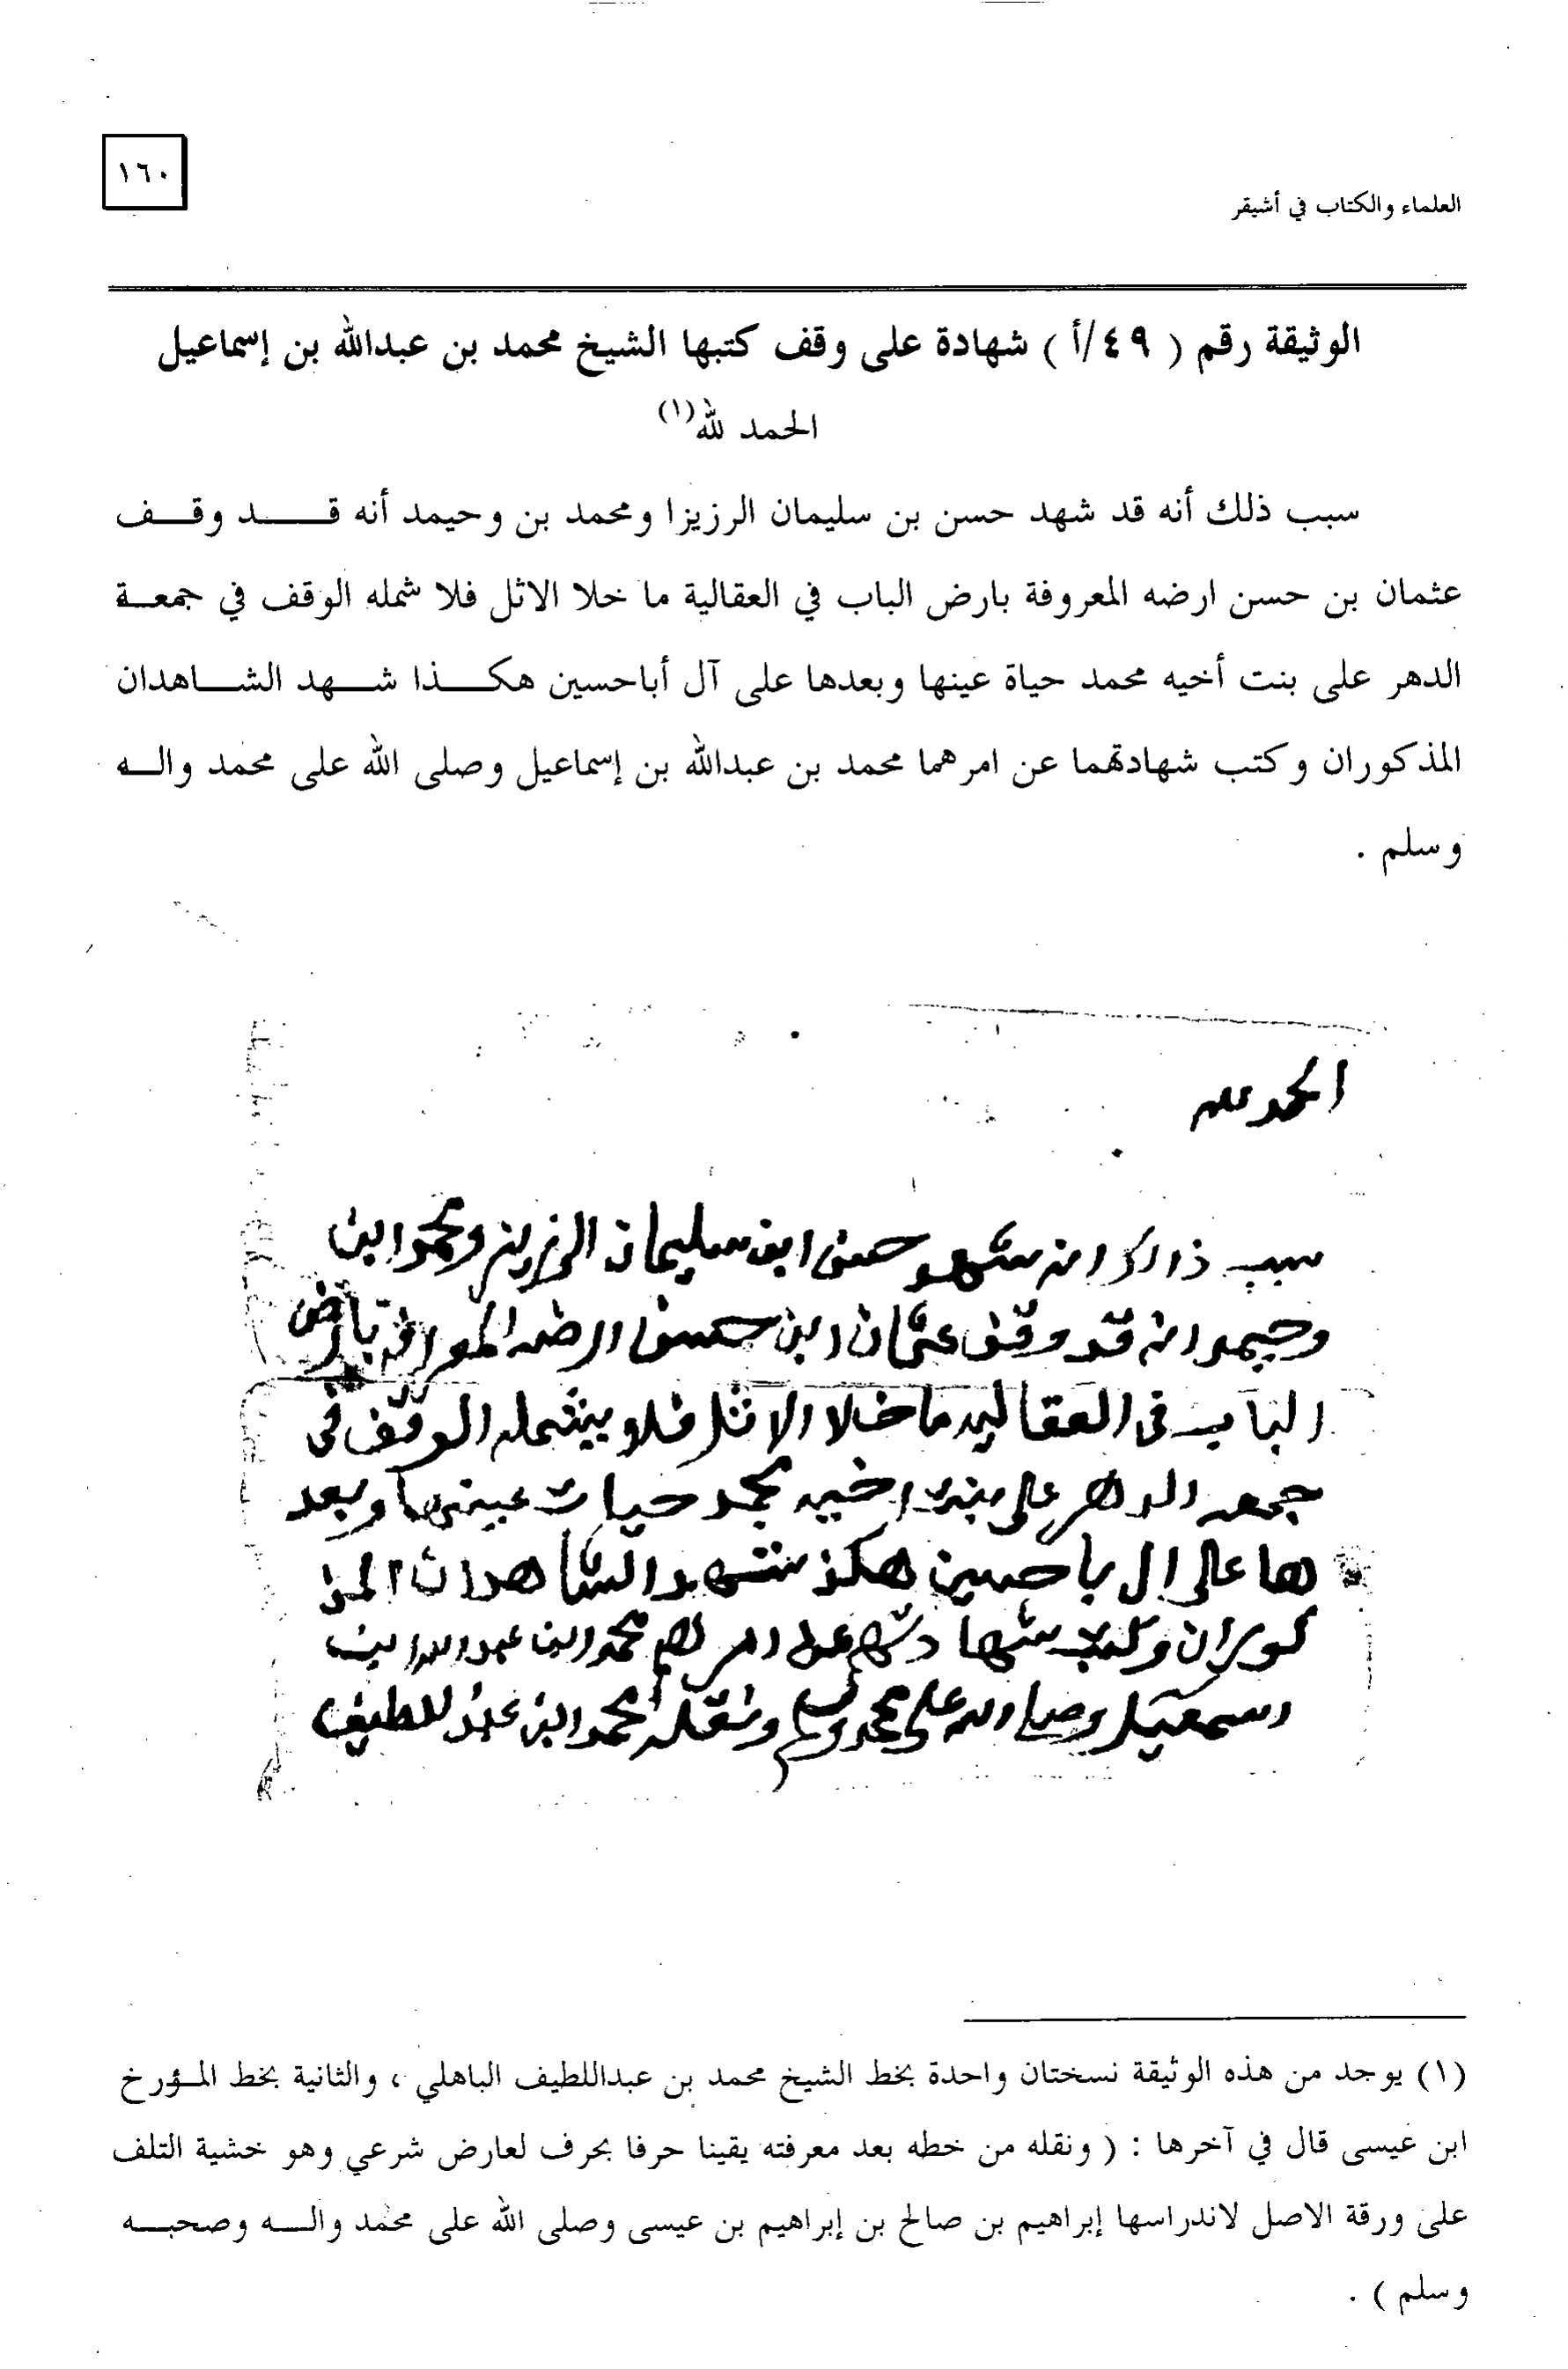 ١٦٠
العلماء والكتاب في أشيقر
الوثيقة رقم ( ٤٩/أ ) شهادة على وقف كتبها الشيخ محمد بن عبدالله بن إسماعيل
الحمد لله(١)
سبب ذلك أنه قد شهد حسن بن سليمان الرزيزا ومحمد بن وحيمد أنه قد وقف
عثمان بن حسن ارضه المعروفة بارض الباب في العقالية ما خلا الاثل فلا شمله الوقف في جمعة
الدهر على بنت أخيه محمد حياة عينها وبعدها على آل أباحسين هكذا شهد الشاهدان
المذكوران وكتب شهادتهما عن امرهما محمد بن عبدالله بن إسماعيل وصلى الله على محمد واله
وسلم .
الحمد لله
سبب ذالك انه شهد حسن ابن سليمان الرزيز ومحمد ابن
وحيمد انه قد وقف عثمان ابن حسن ارضه المعرافه بارض
الباب في العقاليه ما خلا الاثل فلا يشمله الوقف في
جمعه الدهر على بنت اخيه محمد حيات عينها وبعد
ها على ال باحسين هكذ شهد الشاهدان المذ
كوران وكتب شهادتهم عن امرهم محمد ابن عبدالله ابن
اسمعيل وصلى الله على محمد وسلم ونقله محمد ابن عبد اللطيف
(١) يوجد من هذه الوثيقة نسختان واحدة بخط الشيخ محمد بن عبداللطيف الباهلي ، والثانية بخط المؤرخ
ابن عيسى قال في آخرها : ( ونقله من خطه بعد معرفته يقينا حرفا بحرف لعارض شرعي وهو خشية التلف
على ورقة الاصل لاندراسها إبراهيم بن صالح بن إبراهيم بن عيسى وصلى الله على محمد واله وصحبه
وسلم ) .